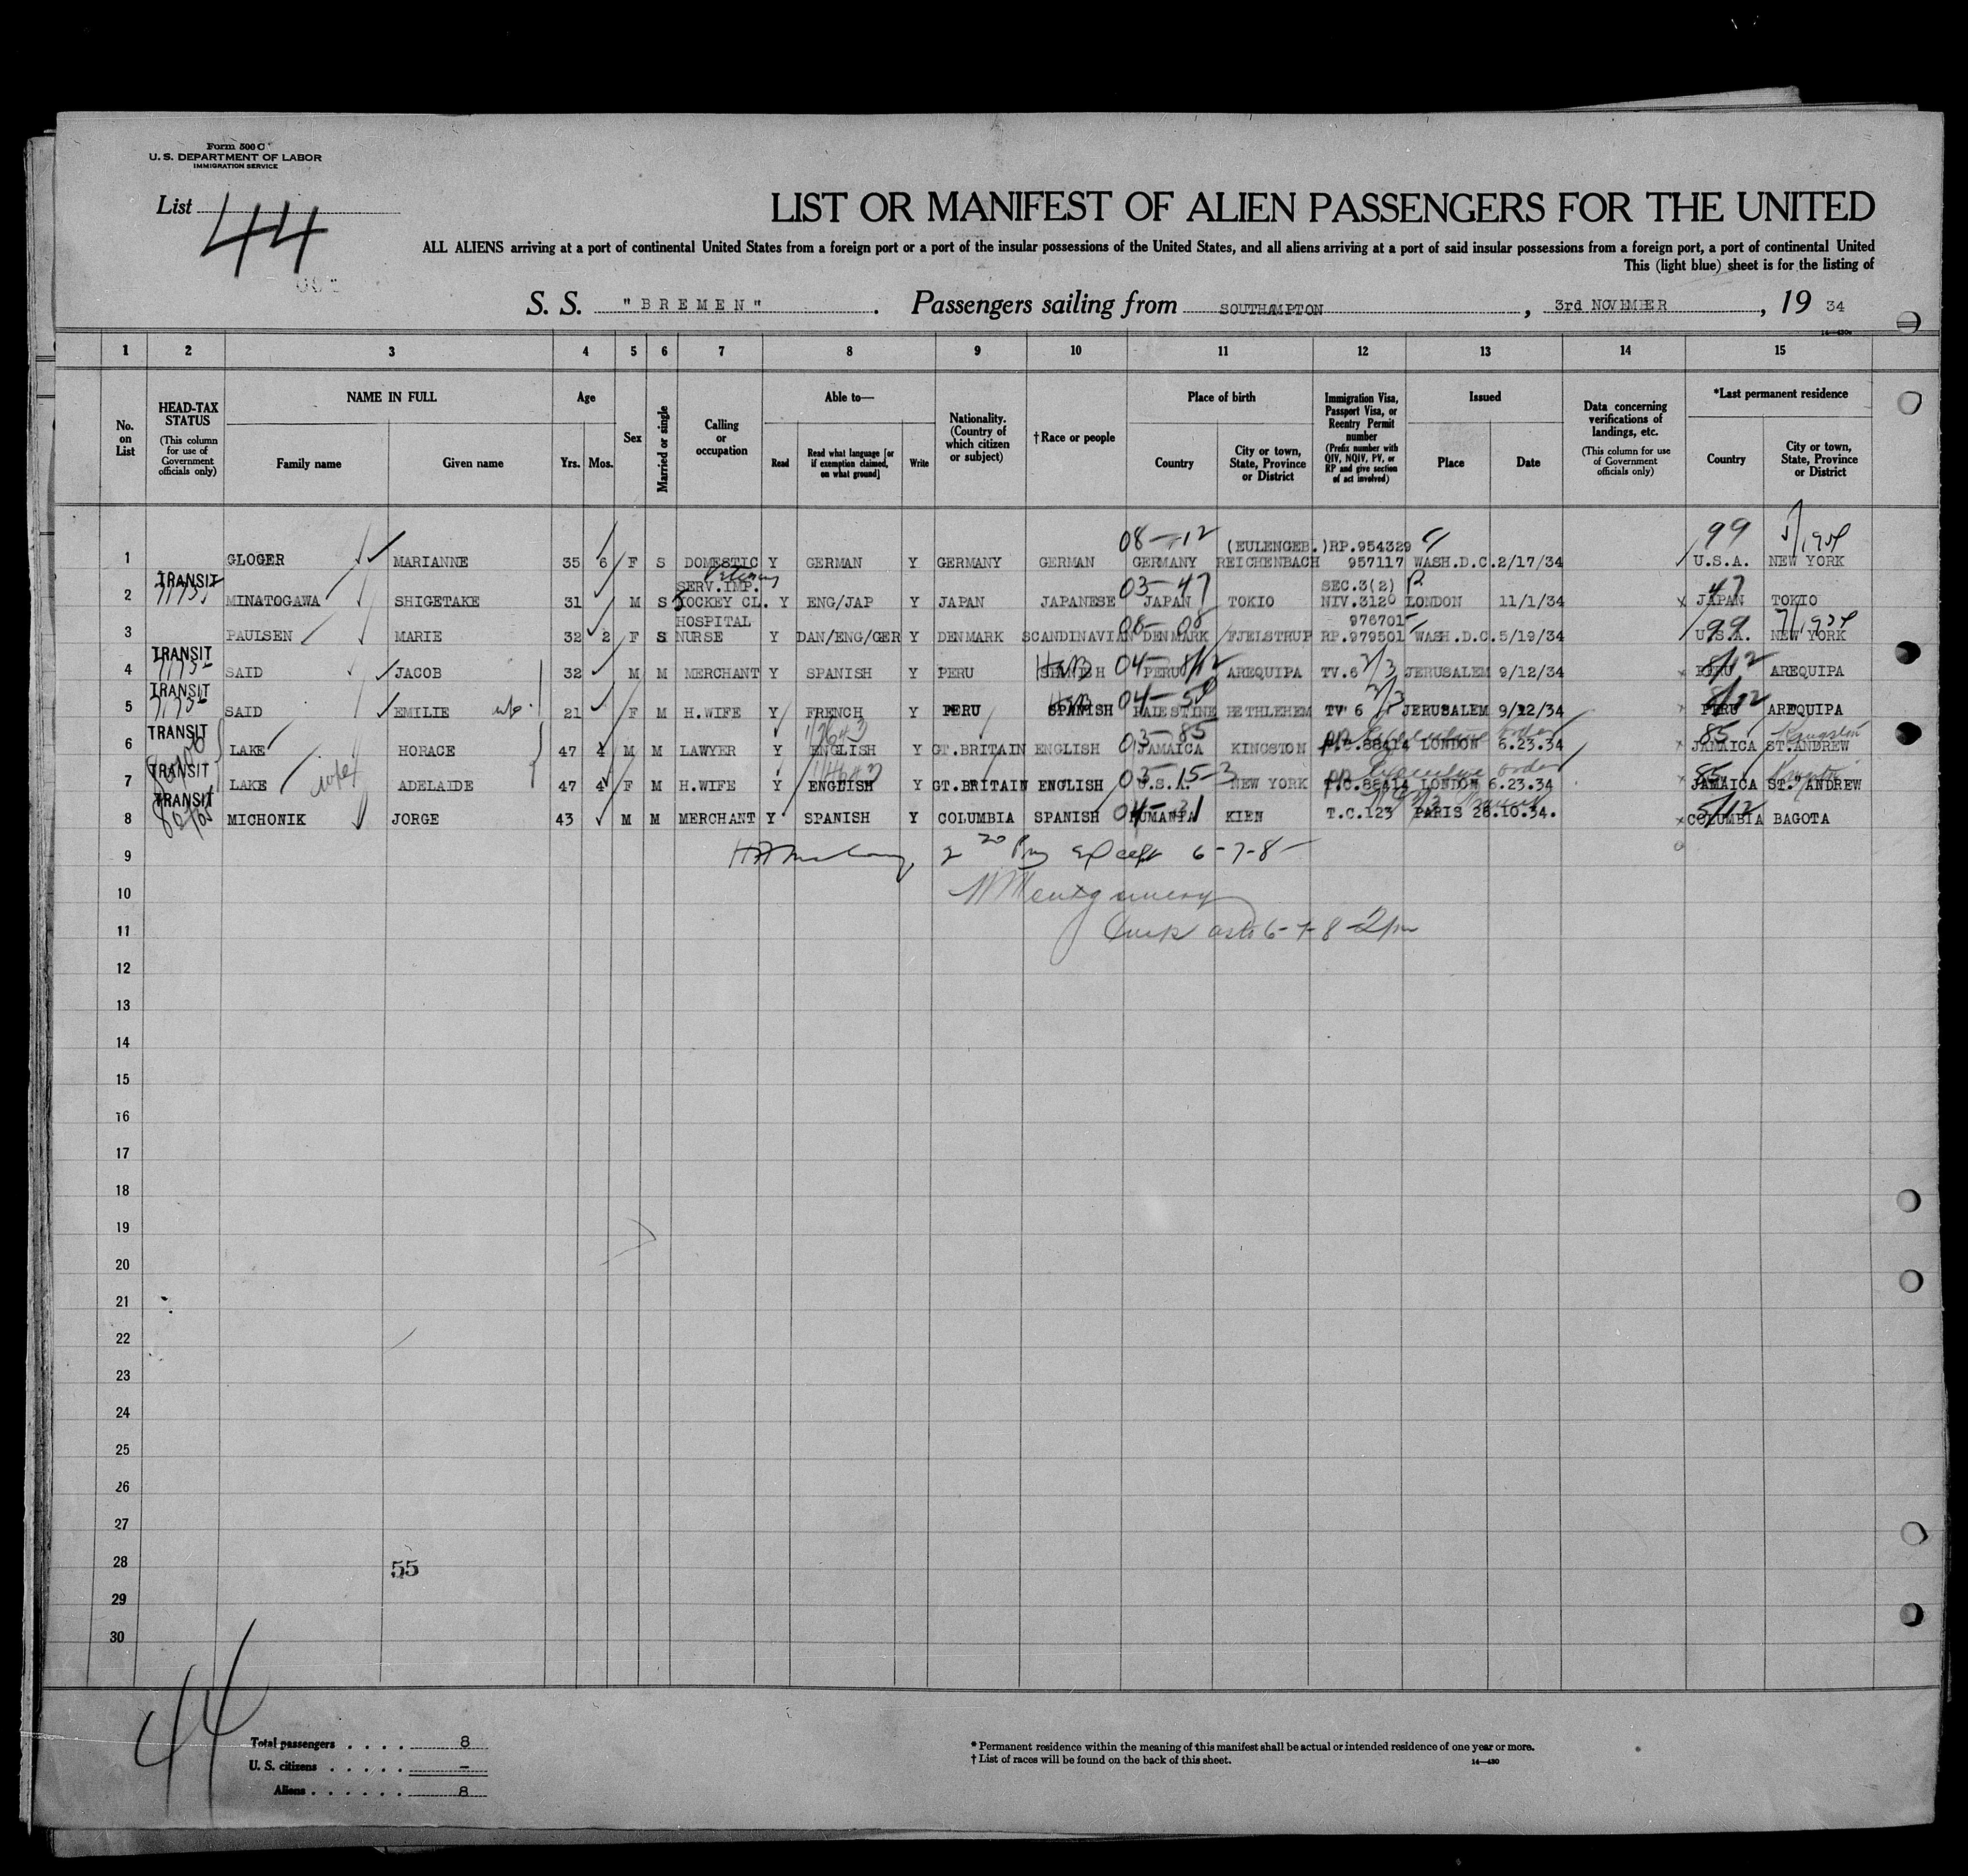 Form 500 C
U. S. DEPARTMENT OF LABOR
IMMIGRATION SERVICE
List 44
LIST OR MANIFEST OF ALIEN PASSENGERS FOR THE UNITED
ALL ALIENS arriving at a port of continental United States from a foreign port or a port of the insular possessions of the United States, and all aliens arriving at a port of said insular possessions from a foreign port, a port of continental United
This (light blue) sheet is for the listing of
S. S. "BREMEN". Passengers sailing from SOUTHAMPTON, 3rd NOVEMBER, 19 34
1 2 3 4 5 6 7 8 9 10 11 12 13 14 15
No. on List
HEAD-TAX STATUS
(This column for use of Government officials only)
NAME IN FULL
Family name
Given name
Age
Yrs. Mos.
Sex
Married or single
Calling or occupation
Able to—
Read
Read what language [or if exemption claimed, on what ground]
Write
Nationality. (Country of which citizen or subject)
†Race or people
Place of birth
Country
City or town, State, Province or District
Immigration Visa, Passport Visa, or Reentry Permit number
(Prefix number with QIV, NQIV, PV, or RP and give section of act involved)
Issued
Place
Date
Data concerning verifications of landings, etc.
(This column for use of Government officials only)
*Last permanent residence
Country
City or town, State, Province or District
08-12 (EULENGEB.) RP.954329 99
1 GLOGER MARIANNE 35 6 F S DOMESTIC Y GERMAN Y GERMANY GERMAN GERMANY REICHENBACH 957117 WASH.D.C. 2/17/34 U.S.A. NEW YORK
TRANSIT SERV.IMP. 03-47 SEC.3(2) 47
2 MINATOGAWA SHIGETAKE 31 M S JOCKEY CL. Y ENG/JAP Y JAPAN JAPANESE JAPAN TOKIO NIV.3120 LONDON 11/1/34 JAPAN TOKIO
HOSPITAL 08-08 976701 99
3 PAULSEN MARIE 32 2 F S NURSE Y DAN/ENG/GER Y DENMARK SCANDINAVIAN DENMARK FJELSTRUP RP.979501 WASH.D.C. 5/19/34 U.S.A. NEW YORK
TRANSIT
4 SAID JACOB 32 M M MERCHANT Y SPANISH Y PERU SPANISH PERU AREQUIPA TV.6 JERUSALEM 9/12/34 PERU AREQUIPA
TRANSIT
5 SAID EMILIE 21 F M H.WIFE Y FRENCH Y PERU SPANISH PALESTINE BETHLEHEM TV 6 JERUSALEM 9/12/34 PERU AREQUIPA
TRANSIT 03-85 85 Kingston
6 LAKE HORACE 47 4 M M LAWYER Y ENGLISH Y GT.BRITAIN ENGLISH JAMAICA KINGSTON P.C.88414 LONDON 6.23.34 JAMAICA ST.ANDREW
TRANSIT Executive order 85
7 LAKE wife ADELAIDE 47 4 F M H.WIFE Y ENGLISH Y GT.BRITAIN ENGLISH U.S.A. NEW YORK T.C.88414 LONDON 6.23.34 JAMAICA ST. ANDREW
TRANSIT
8 MICHONIK JORGE 43 M M MERCHANT Y SPANISH Y COLUMBIA SPANISH RUMANIA KIEN T.C.123 PARIS 26.10.34. COLUMBIA BAGOTA
9 6-7-8
10 Montgomery
11 6-7-8-2pm
12
13
14
15
16
17
18
19
20
21
22
23
24
25
26
27
28 55
29
30
44
Total passengers . . . . 8
U. S. citizens . . . . . –
Aliens . . . . . . 8
* Permanent residence within the meaning of this manifest shall be actual or intended residence of one year or more.
† List of races will be found on the back of this sheet.
14—430